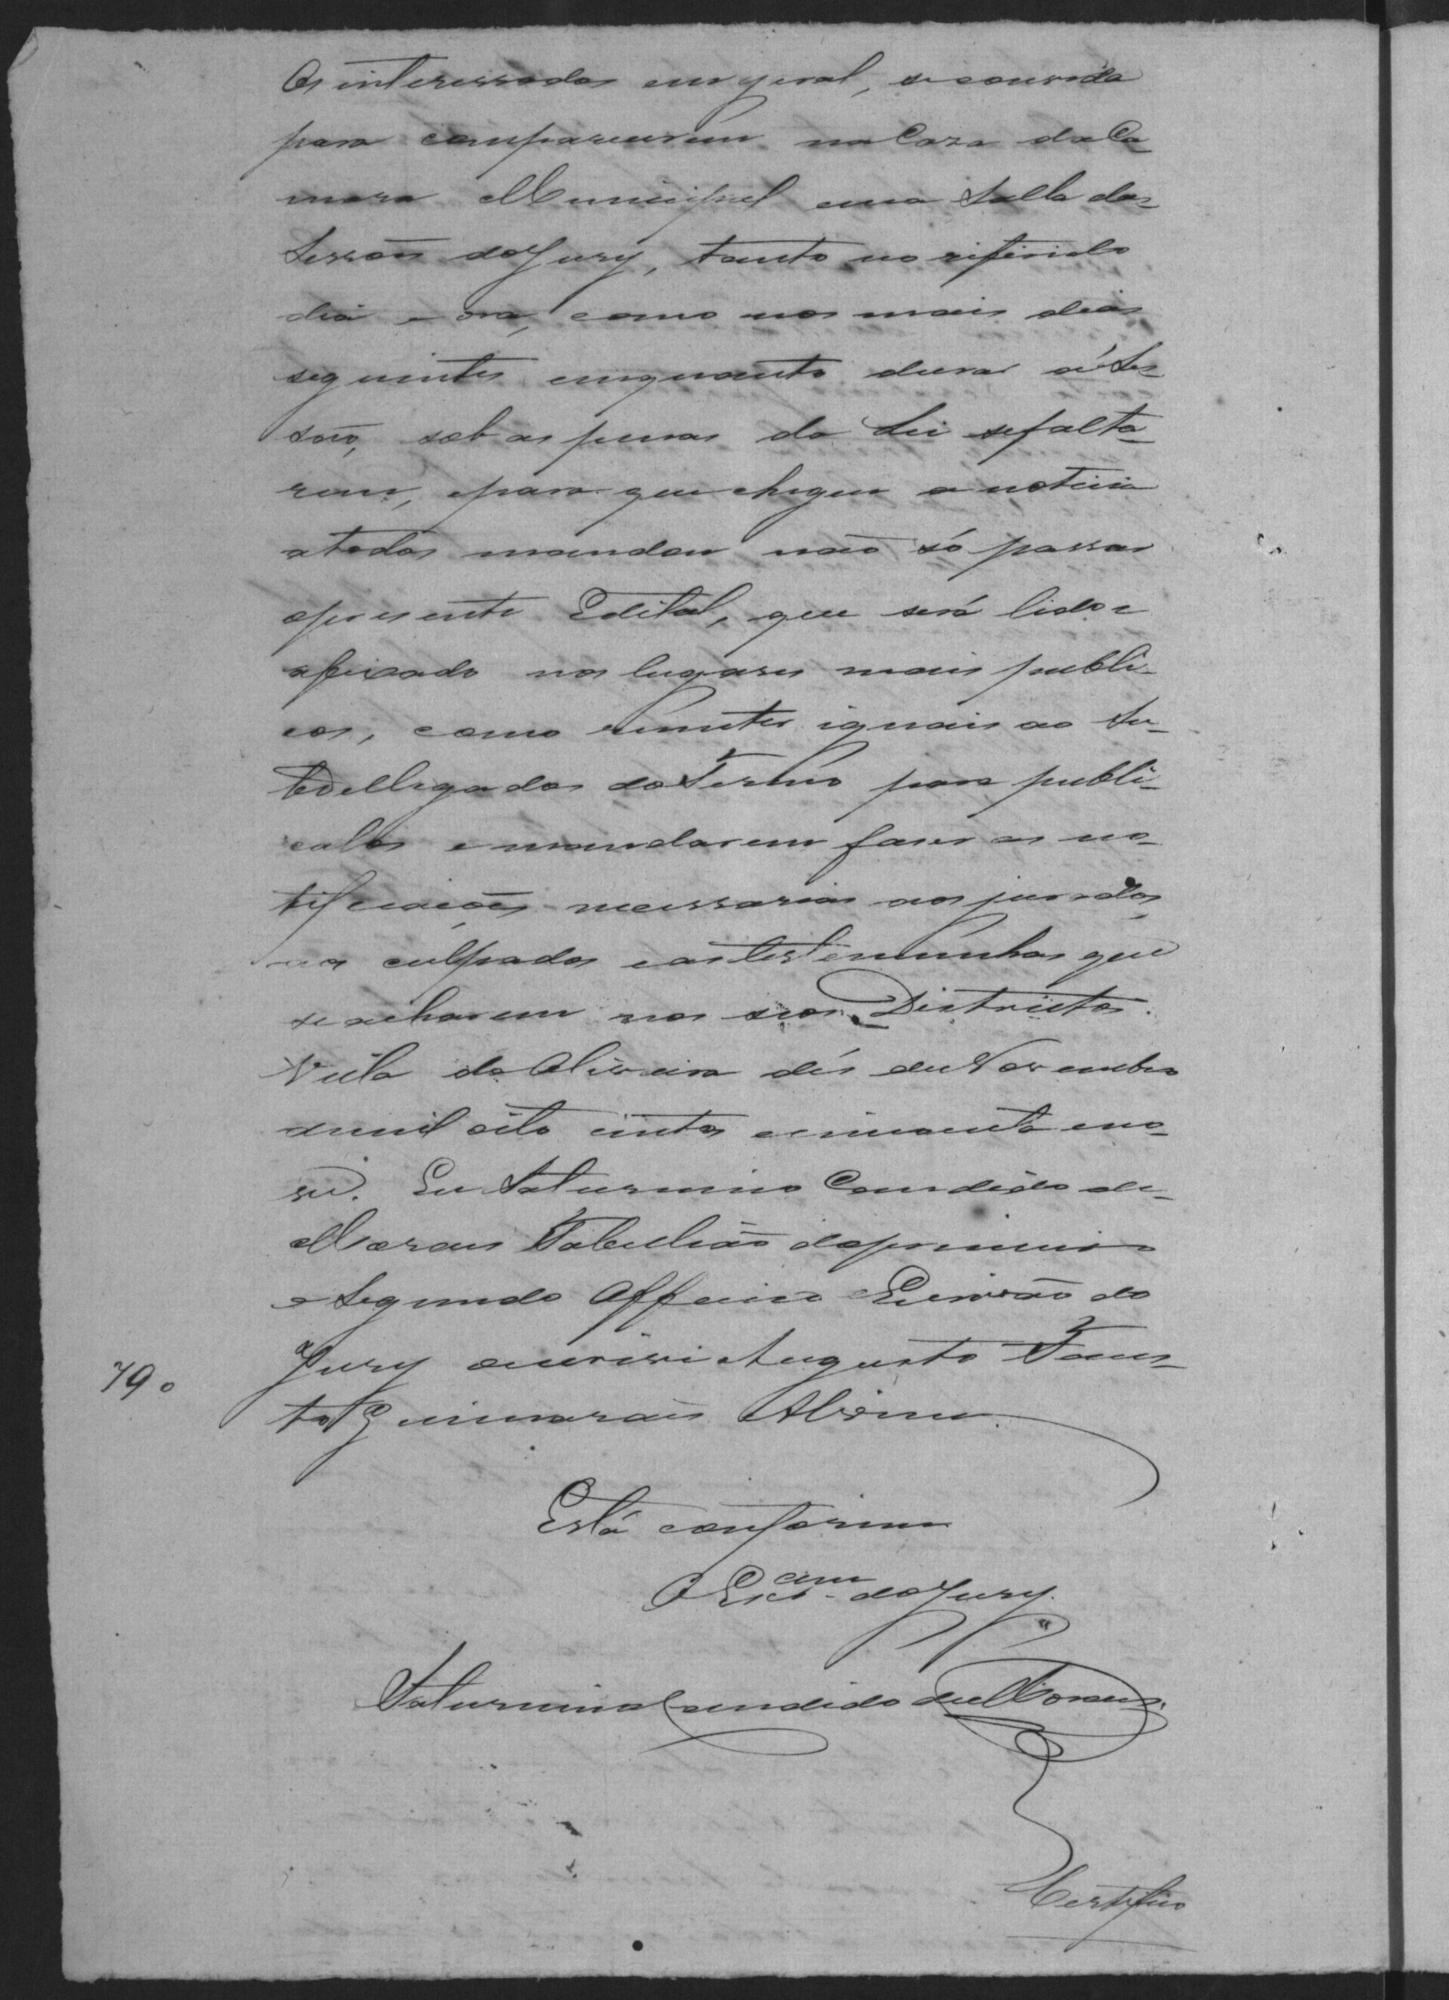 Os interessados em geral, se convida
para comparecerem na Caza da Ca-
mara Municipal em a Salla das
Sessoẽs do Jury, tanto no referido
dia e ora, como nos mais dias
seguintes emquanto durar a Ses-
saõ, sob as penas da Lei se falta-
rem, e para que chegue a noticia
a todos mandou não só passar
o presente Edital, que será lido e
afixado nos lugares mais publi-
cos, como remeter iguais ao Su-
bdellegados do Termo para publi-
calos e mandarem faser as no-
tificaçoẽs necessarias aos jurados,
aos culpados e as testemunhas que
se acharem nos seos Districtos.
Villa da Oliveira dés de Novembro
de mil oito centos e cincoenta e no-
ve. Eu Saturnino Candido de
Moraes Tabelião do primeiro
e Segundo Officio Escrivão do
Jury o escrivi Augusto Faus-
to Guimaraẽs Alvim
79.
Está conforme
O Escr.am do Jury
Saturnino Candido de Moraes.
Certifico